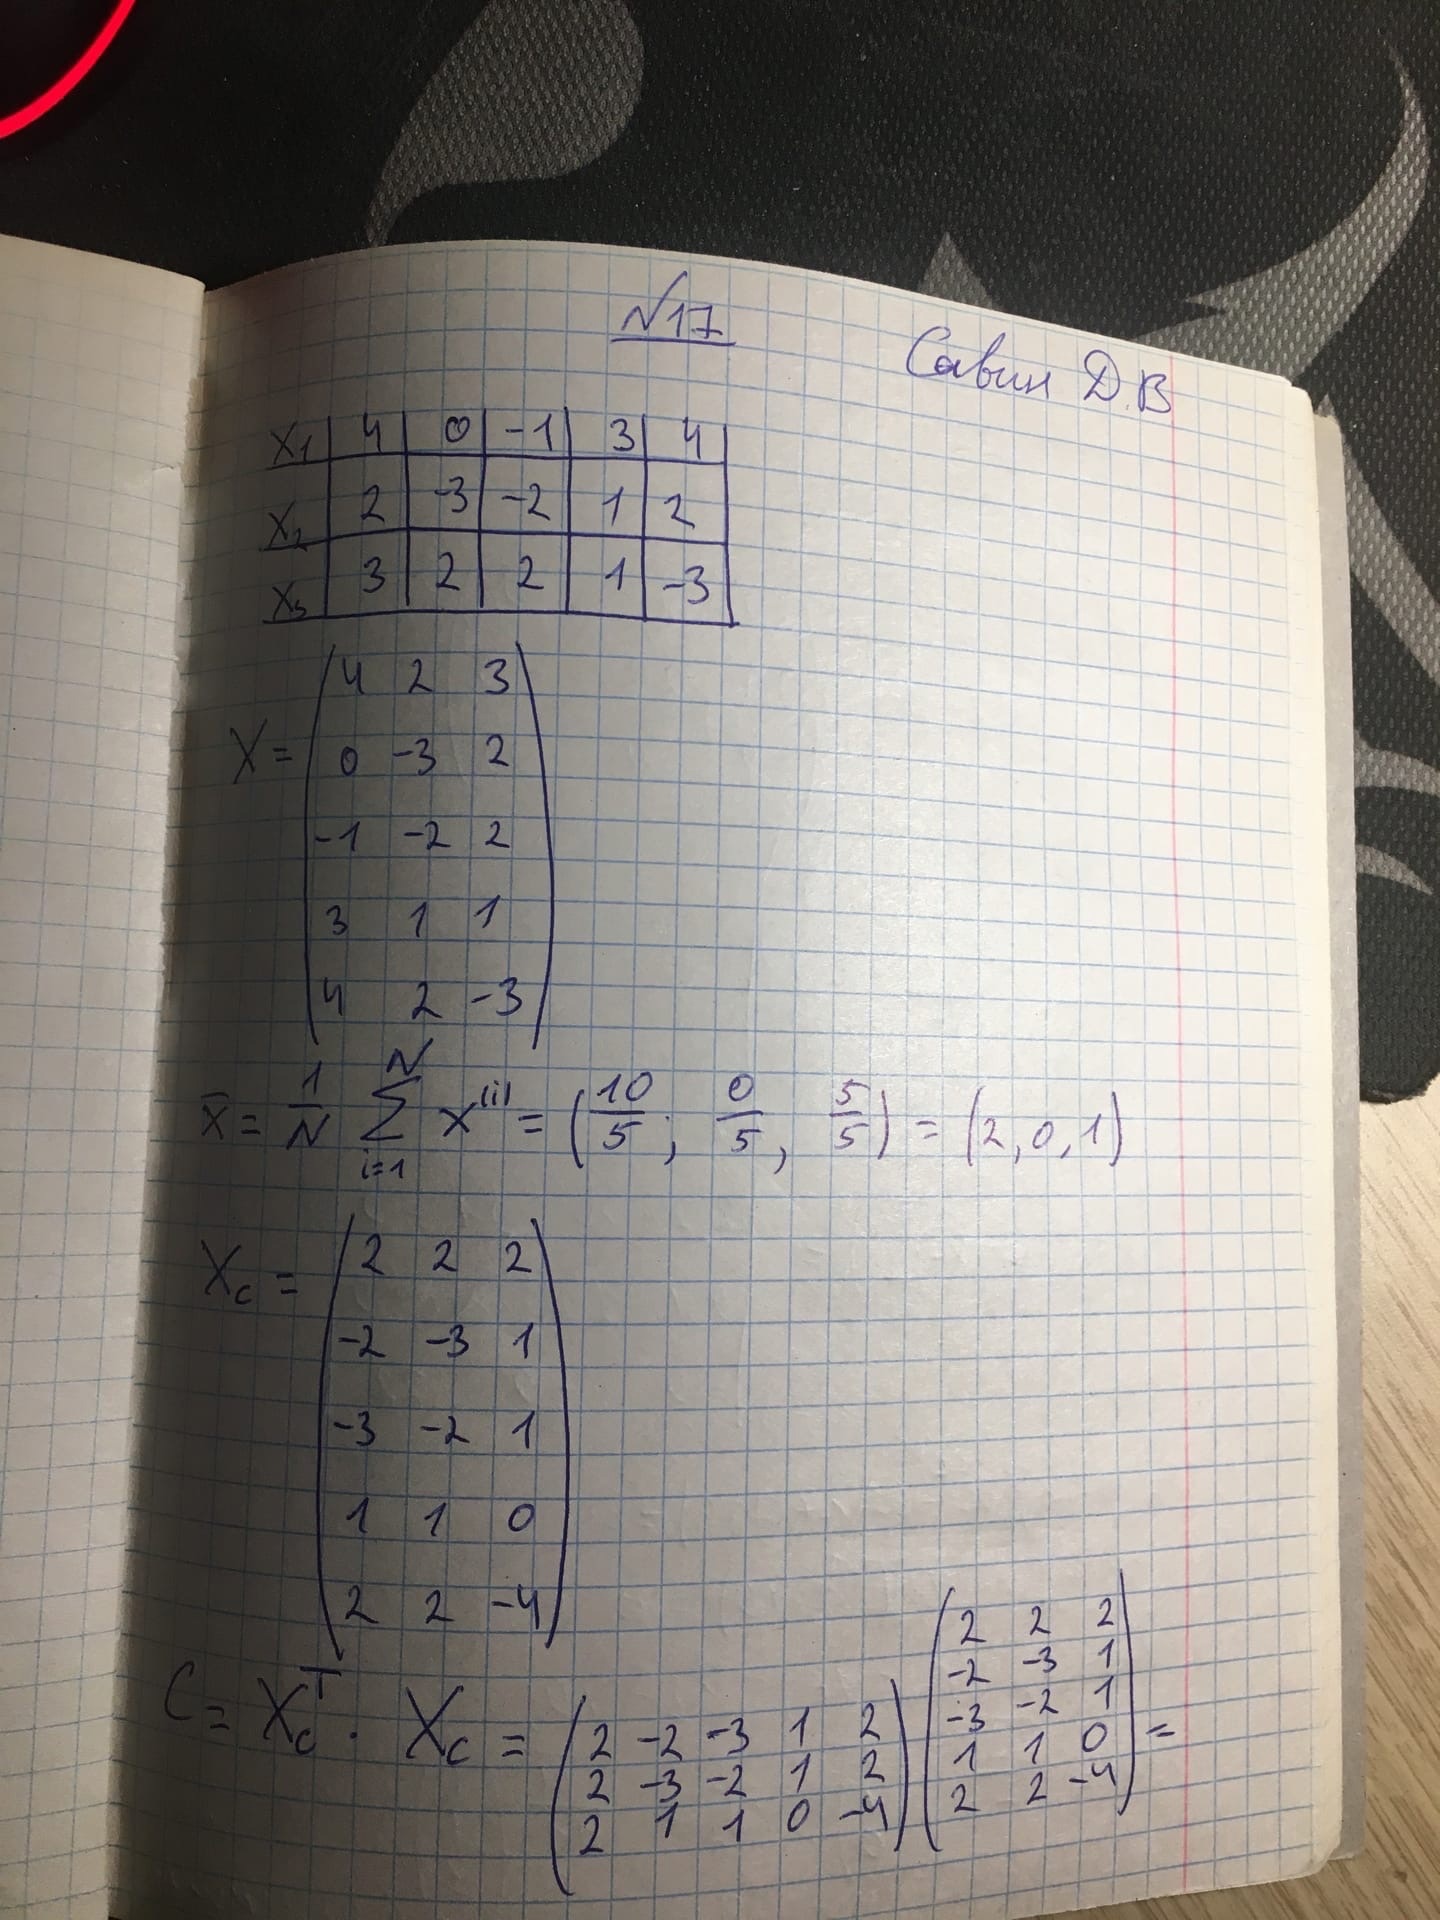 №17
Савин Д.В
x₁ | 4 | 0 | -1 | 3 | 4
x₂ | 2 | -3 | -2 | 1 | 2
x₃ | 3 | 2 | 2 | 1 | -3
4 2 3
X = 0 -3 2
-1 -2 2
3 1 1
4 2 -3
x̄ = 1/N ∑ᵢ₌₁ᴺ x⁽ⁱ⁾ = (10/5; 0/5, 5/5) = (2,0,1)
Xc = 2 2 2
-2 -3 1
-3 -2 1
1 1 0
2 2 -4
C = Xcᵀ · Xc = (2 -2 -3 1 2
2 -3 -2 1 2
2 1 1 0 -4)
(2 2 2
-2 -3 1
-3 -2 1
1 1 0
2 2 -4) =